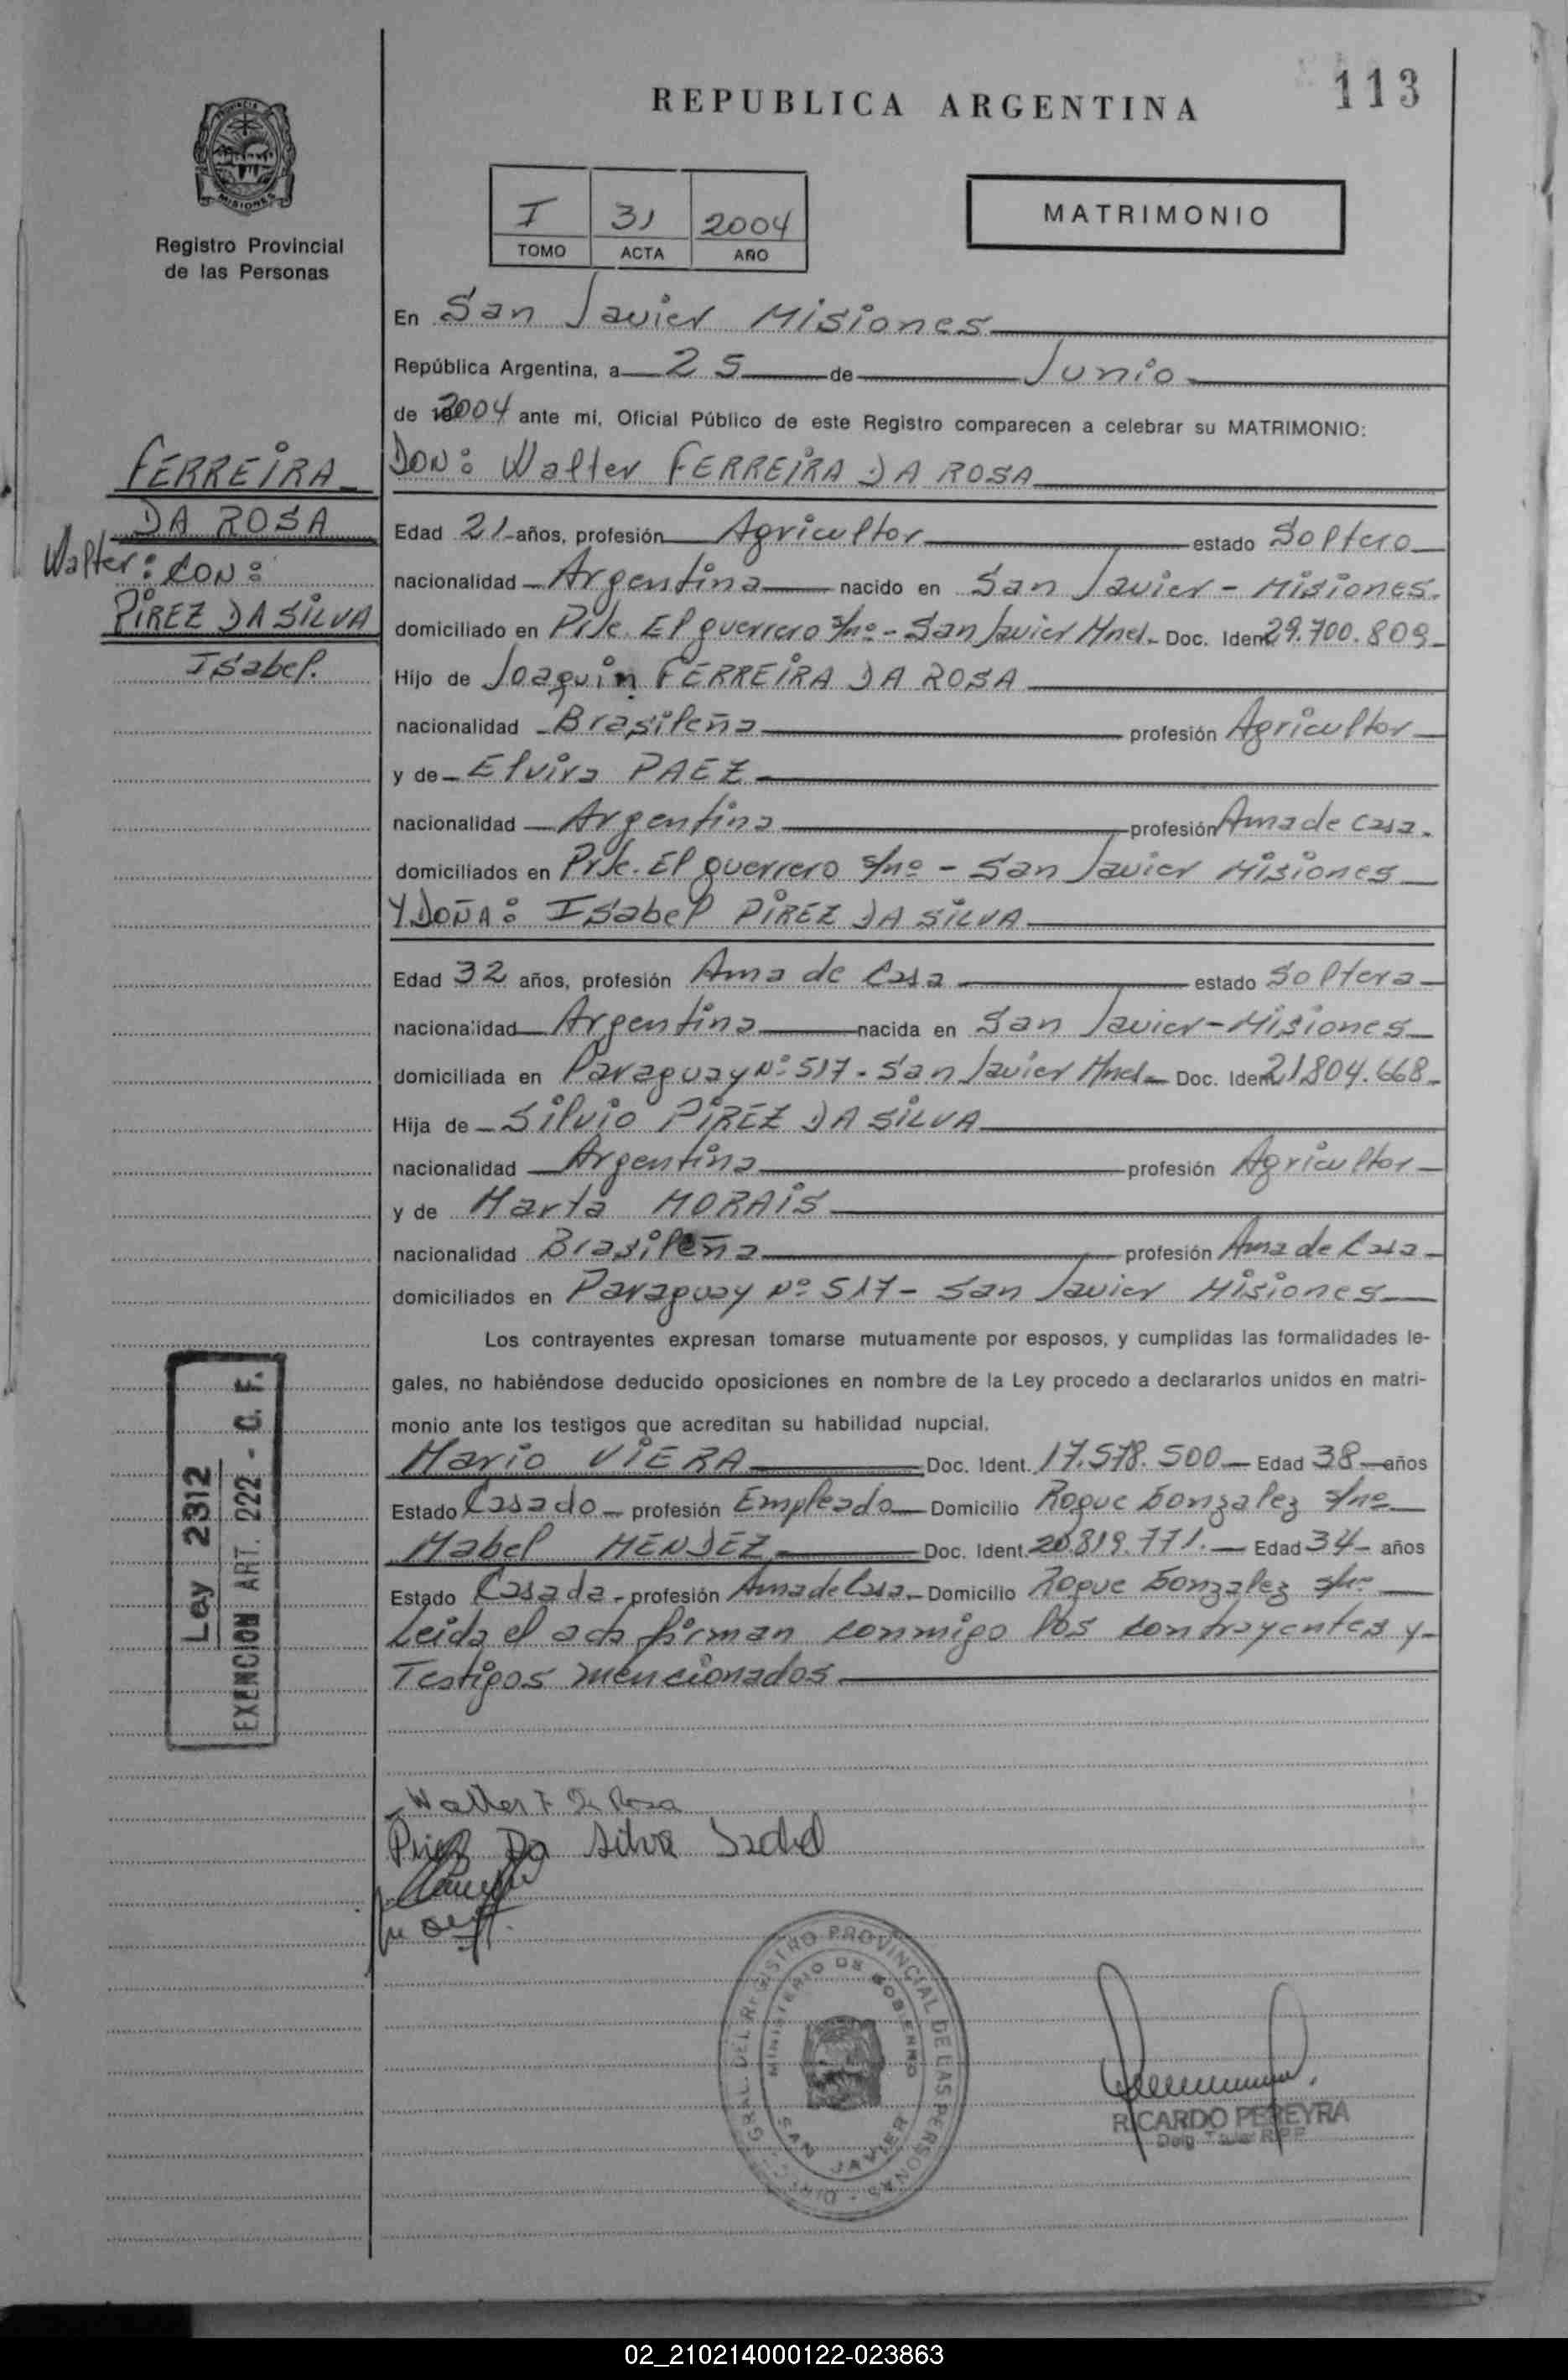 113
REPUBLICA ARGENTINA
MISIONES
Registro Provincial
de las Personas
I 31 2004
TOMO ACTA AÑO
MATRIMONIO
En San Javier Misiones
República Argentina, a 25 de Junio
de 2004 ante mi, Oficial Público de este Registro comparecen a celebrar su MATRIMONIO:
FERREIRA
DA ROSA
Walter: CON:
PIREZ DA SILVA
Isabel.
DON: Walter FERREIRA DA ROSA
Edad 21 años, profesión Agricultor estado Soltero
nacionalidad Argentina nacido en San Javier - Misiones.
domiciliado en Pje. El guerrero s/nº - San Javier Mnes. Doc. Ident 29.700.809
Hijo de Joaquin FERREIRA DA ROSA
nacionalidad Brasileña profesión Agricultor
y de Elvira PAEZ
nacionalidad Argentina profesión Ama de casa.
domiciliados en Pje. El guerrero s/nº - San Javier Misiones
Y DOÑA: Isabel PIREZ DA SILVA
Edad 32 años, profesión Ama de Casa estado Soltera
nacionalidad Argentina nacida en San Javier - Misiones
domiciliada en Paraguay Nº 517 - San Javier Mnes. Doc. Ident 21.804.668
Hija de Silvio PIREZ DA SILVA
nacionalidad Argentina profesión Agricultor
y de Marta MORAIS
nacionalidad Brasileña profesión Ama de Casa
domiciliados en Paraguay Nº 517 - San Javier Misiones
Los contrayentes expresan tomarse mutuamente por esposos, y cumplidas las formalidades le-
gales, no habiéndose deducido oposiciones en nombre de la Ley procedo a declararlos unidos en matri-
monio ante los testigos que acreditan su habilidad nupcial.
Mario VIERA Doc. Ident. 17.578.500 Edad 38 años
Estado Casado profesión Empleado Domicilio Roque Gonzalez s/nº
Mabel MENDEZ Doc. Ident. 20.819.771. Edad 34 años
Estado Casada profesión Ama de Casa Domicilio Roque Gonzalez s/nº
Leida el acta firman conmigo los contrayentes y
Testigos mencionados
Ley 2312
EXENCION ART. 222 - C. F.
Walter F Da Rosa
Pirez Da Silva Isabel
DIREC. GRAL. DEL REGISTRO PROVINCIAL DE LAS PERSONAS
MINISTERIO DE GOBIERNO
SAN JAVIER
RICARDO PEREYRA
02_210214000122-023863